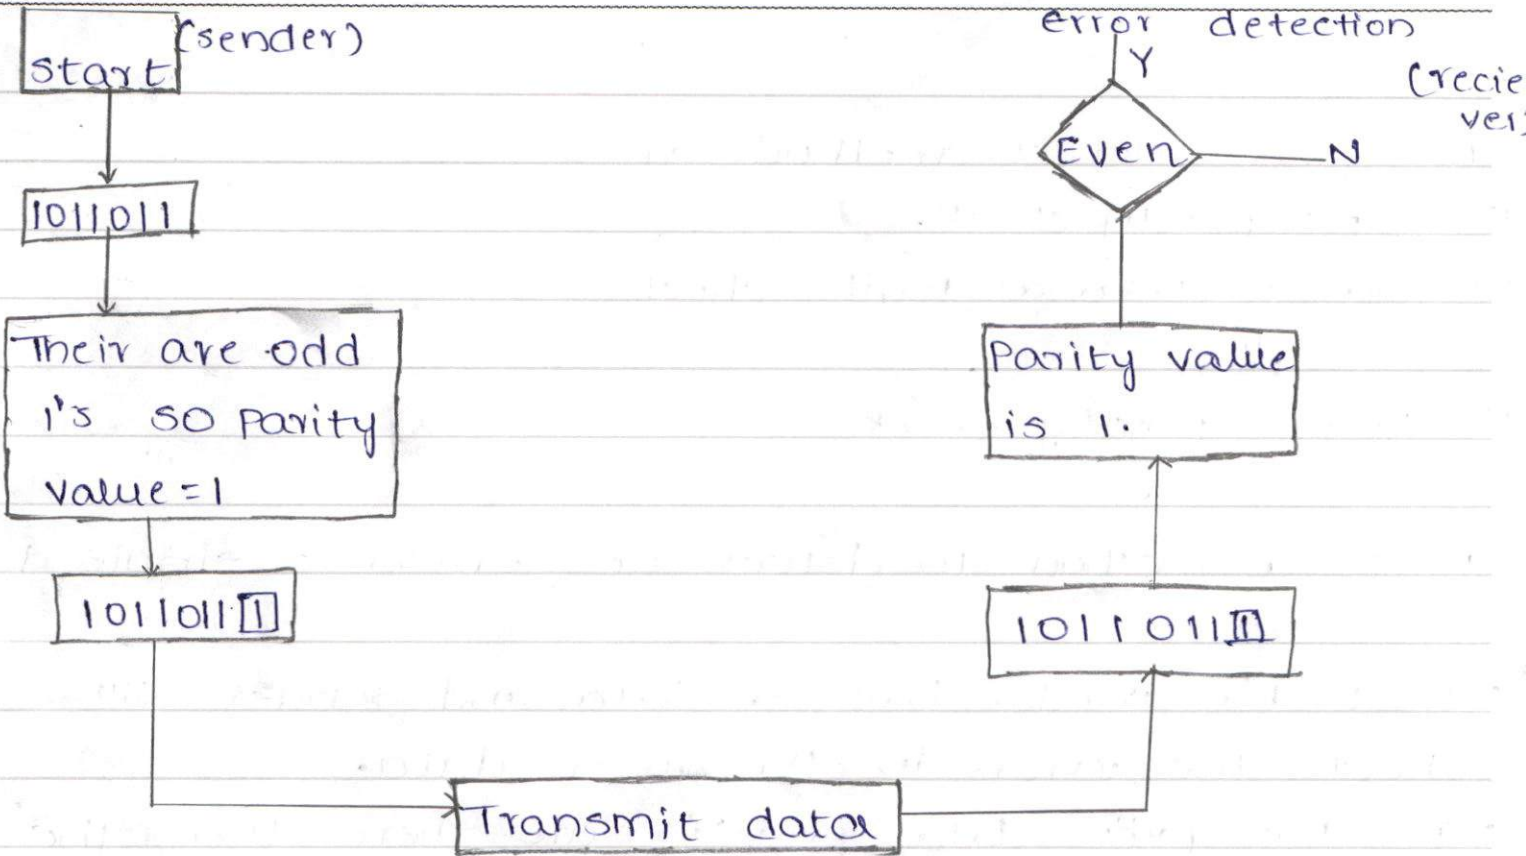 (sender)
Start
1011011
Their are odd
1's so parity
value = 1
1011011 1
Transmit data
1011011 1
Parity value
is 1.
Even
Y
N
error detection
(recie
ver)